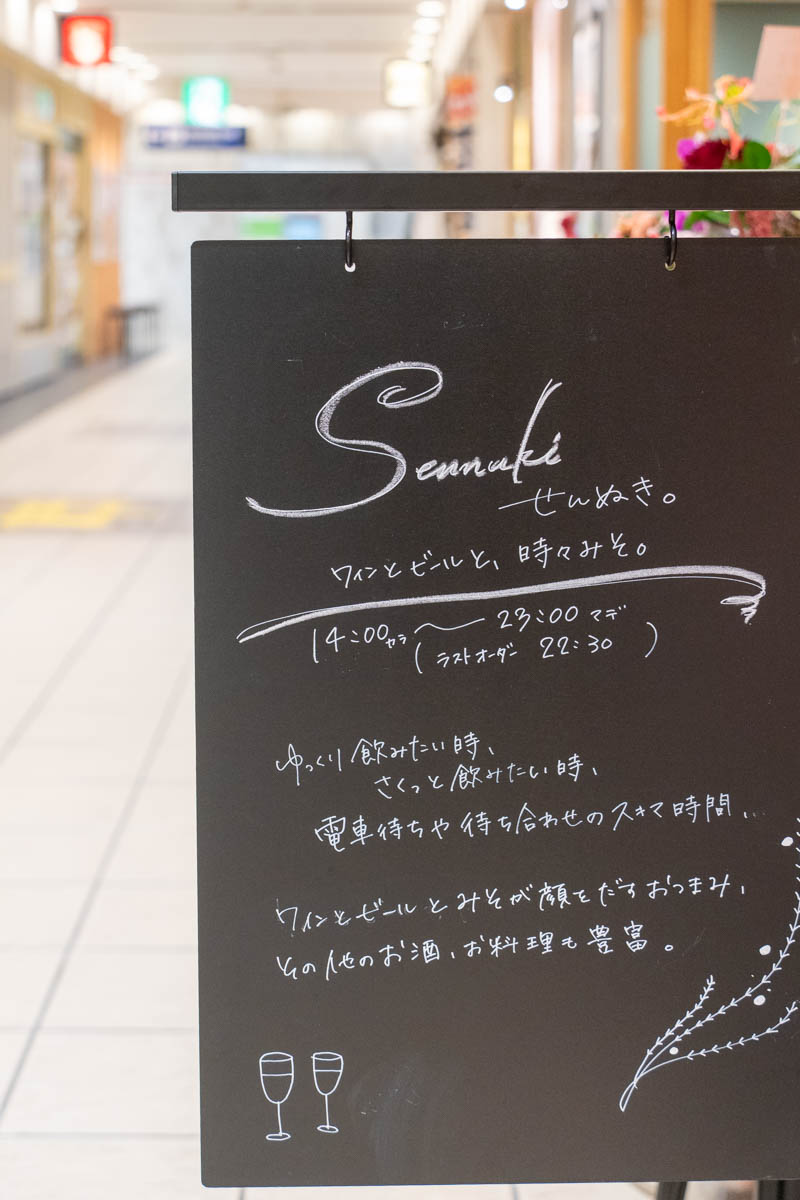 Sennuki
せんぬき。
ワインとビールと、時々みそ。
14:00カラ〜23:00マデ
(ラストオーダー 22:30)
ゆっくり飲みたい時、
さくっと飲みたい時、
電車待ちや待ち合わせのスキマ時間、
ワインとビールとみそが顔をだすおつまみ、
その他のお酒、お料理も豊富。